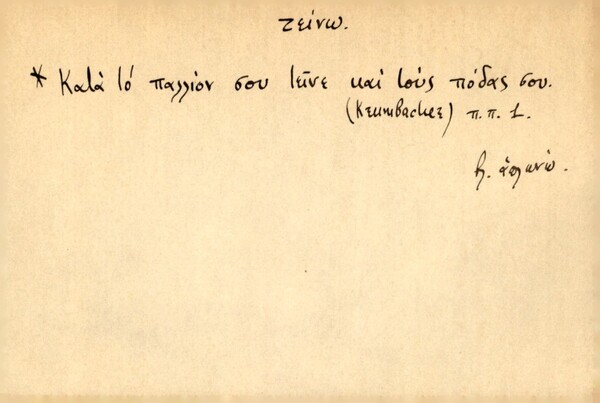 τείνω.
* Κατὰ τό παλλίον σου τεῖνε καί τούς πόδας σου.
(Krumbacher) π.π. 1.
β. ἁπλωνώ.